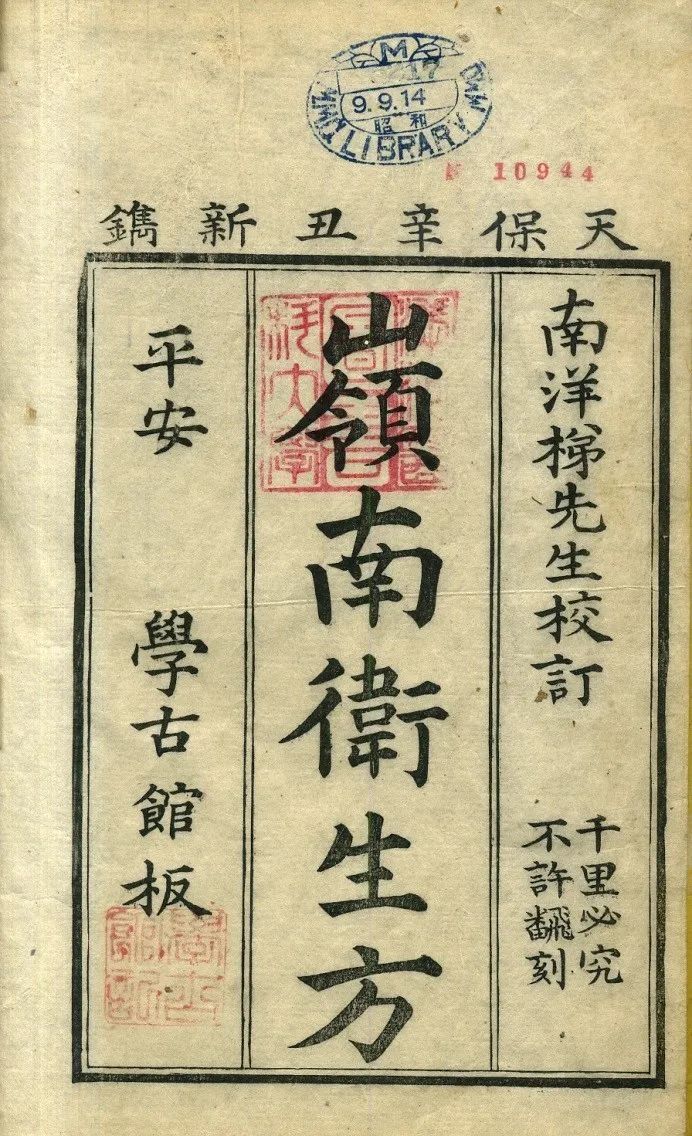 M
9.9.14
昭和
LIBRARY
10944
天保辛丑新鐫
南洋梯先生校訂
千里必究
不許飜刻
嶺南衛生方
平安 學古館板